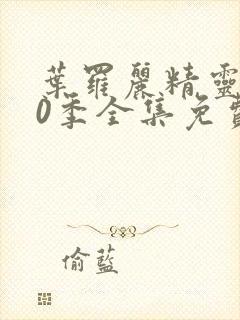 葉羅麗精靈
0季全集免費
偷藍